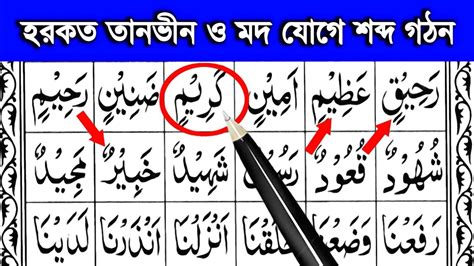 হরকত তানভীন ও মদ যোগে শব্দ গঠন
رَحِيْقٍ عَظِيْمٍ اَمِيْنٍ كَرِيْمٍ ضَنِيْنٍ رَحِيْمٍ
شُهُوْدٌ قُعُوْدٌ شَهِيْدٌ خَبِيْرٌ مَجِيْدٌ
رَفَعْنَا اَنْزَلْنَا اَنْذَرْنَا لَدَيْنَا